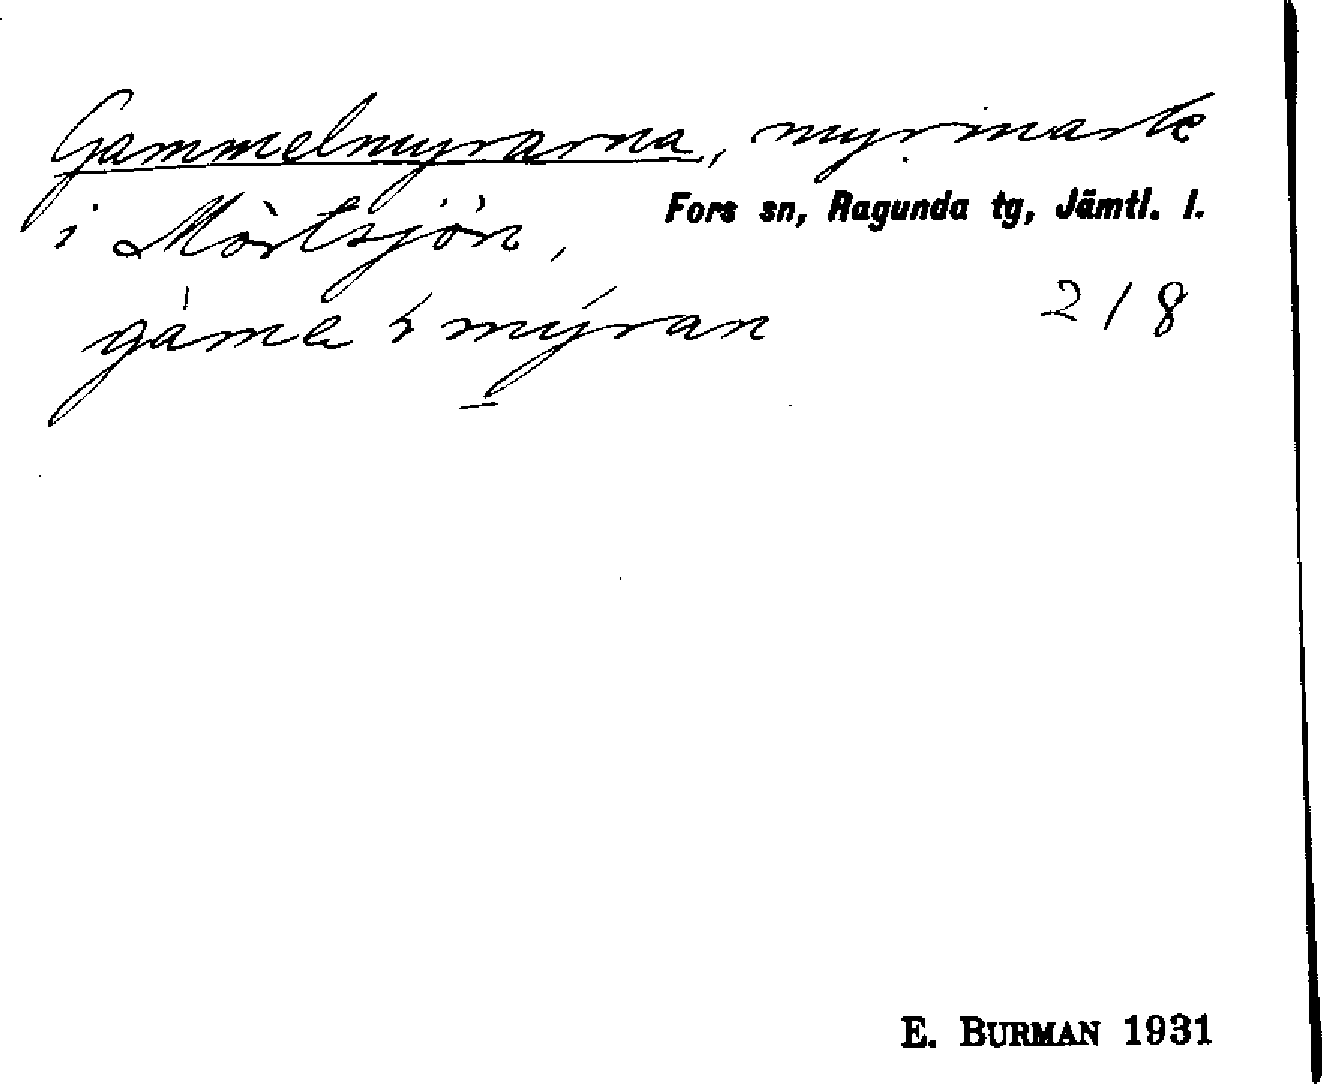 Gammelmyrarna, myrmark
i Mörtsjön,
Fors sn, Ragunda tg, Jämtl. l.
myran
218
E. BURMAN 1931